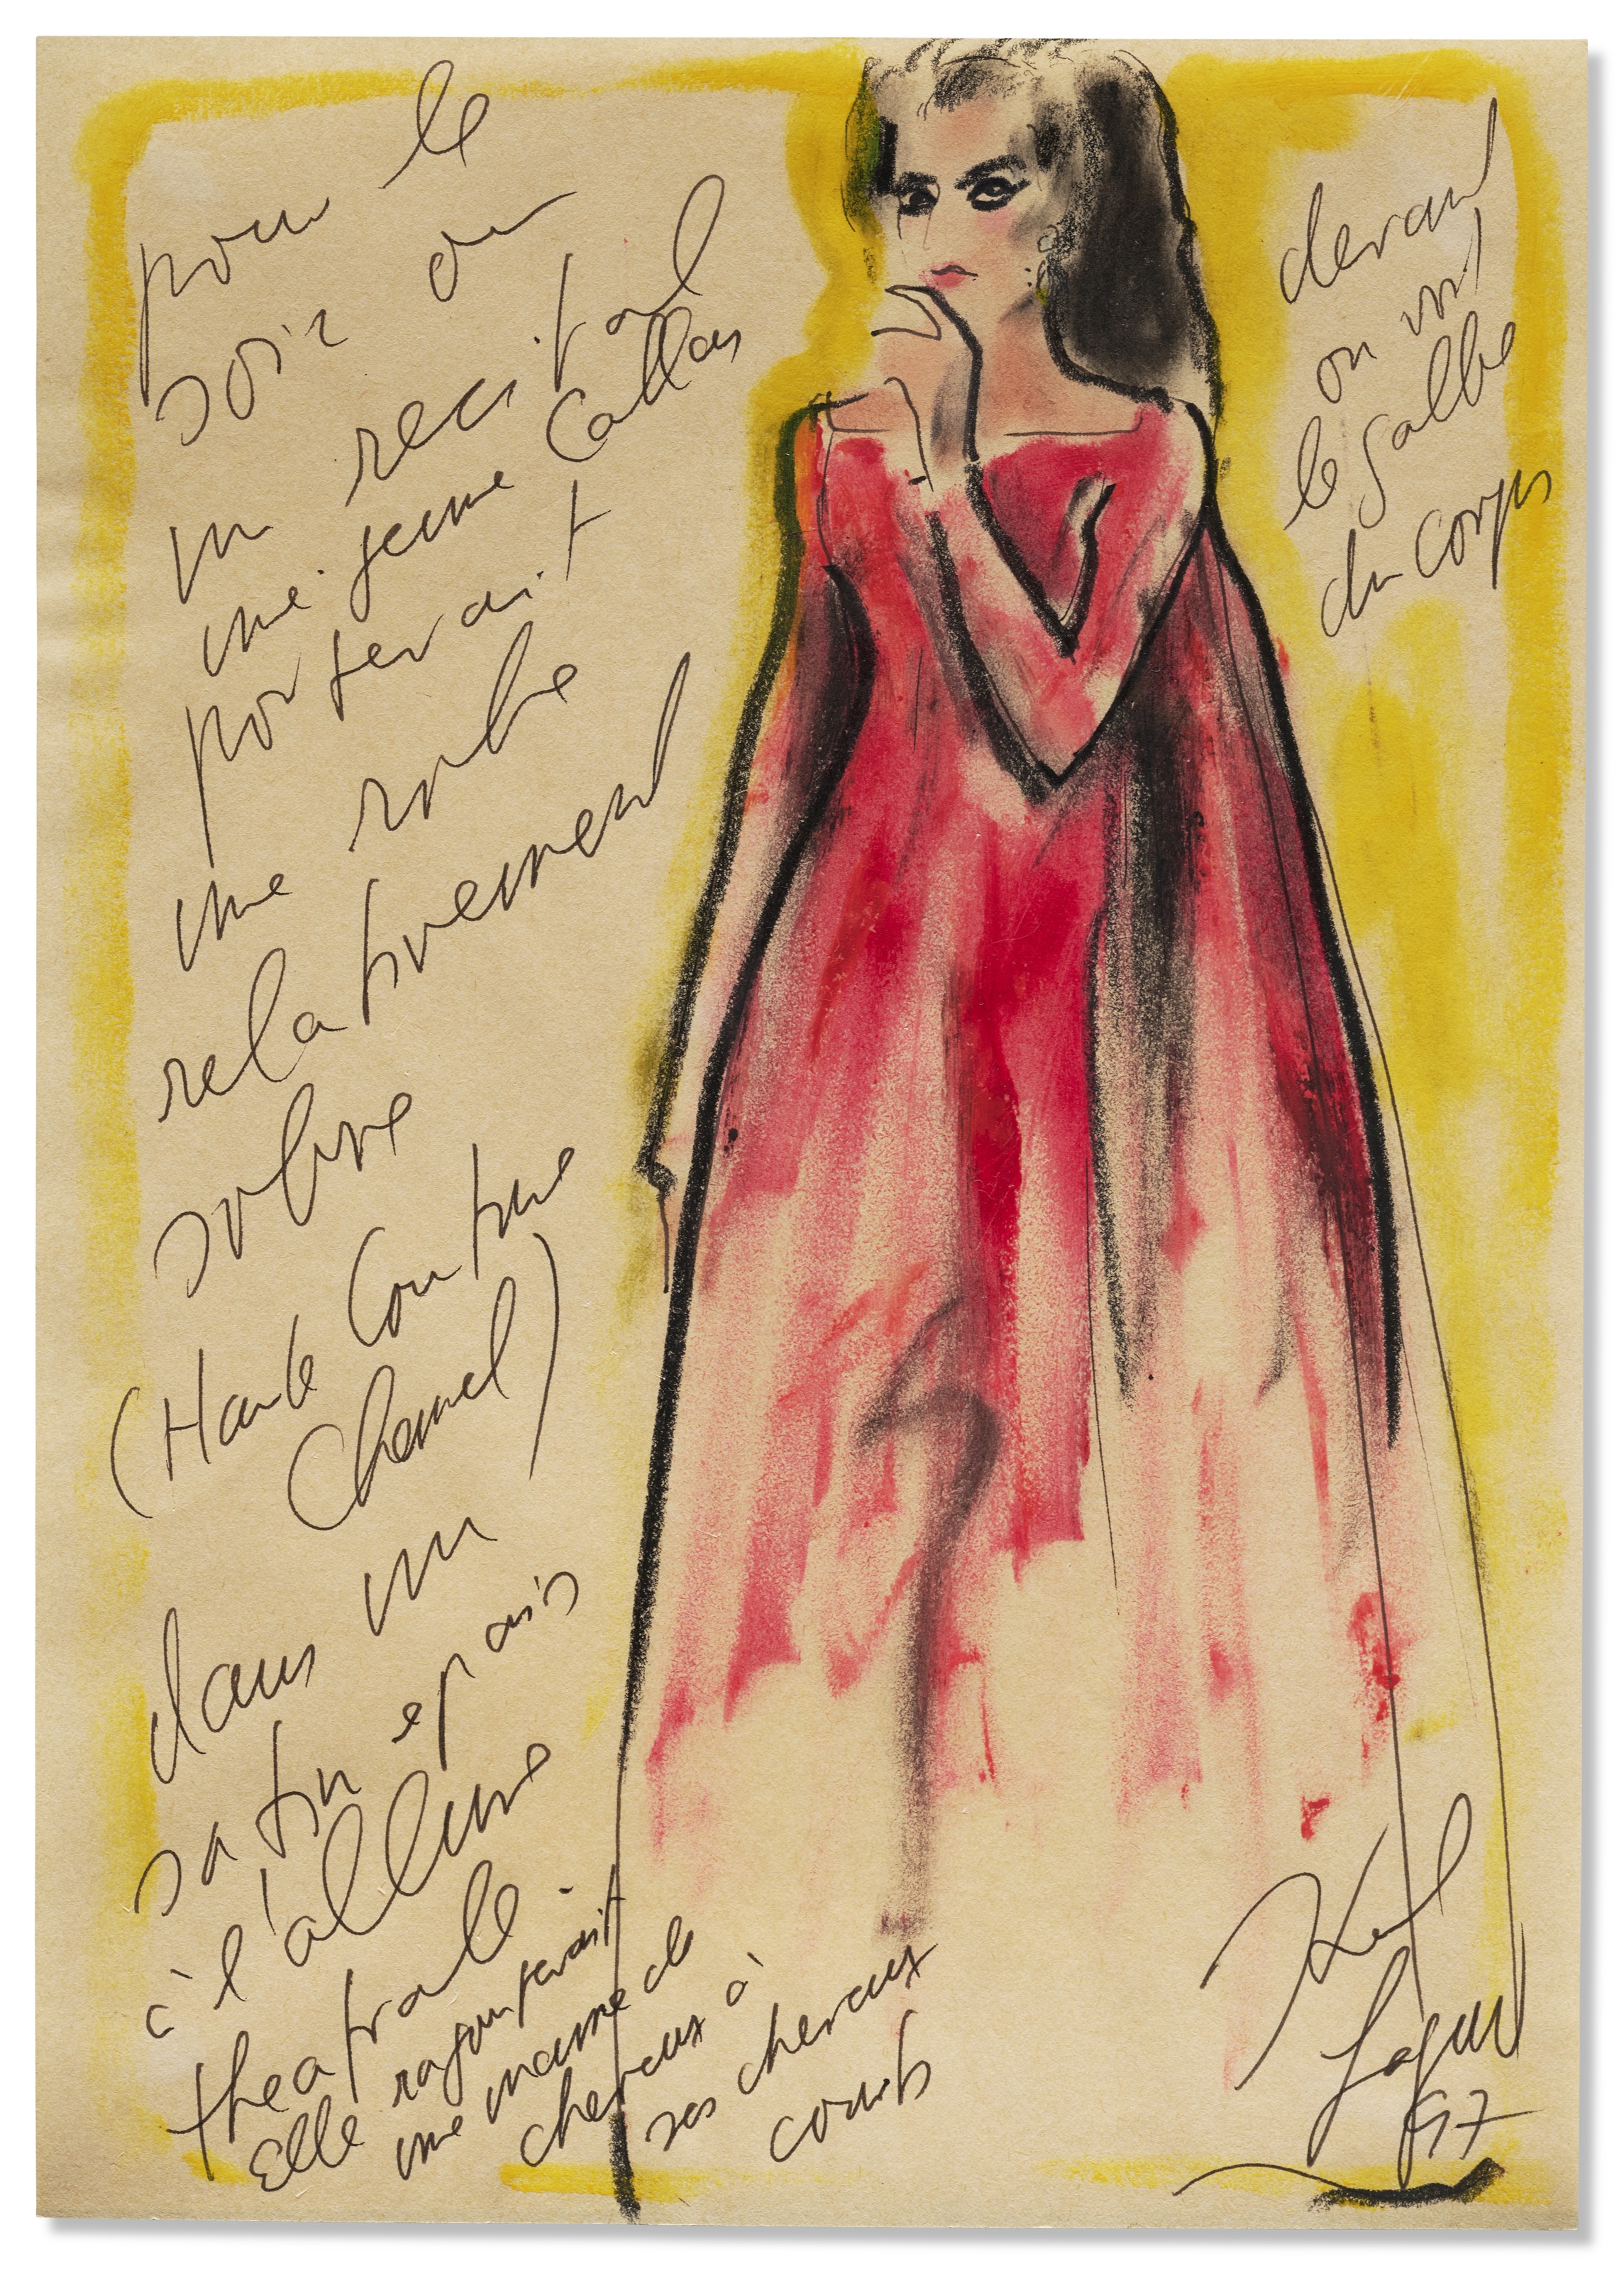 pour le
soir ou
un recital
une jeune Callas
porterait
une robe
relativement
sobre
(Haute Couture
Chanel)
dans un
satin epais
à l'allure
theatrale
Elle rajouterait
une masse de
cheveux à
ses cheveux
courts
devant
on voit
le galbe
du corps
Karl
97